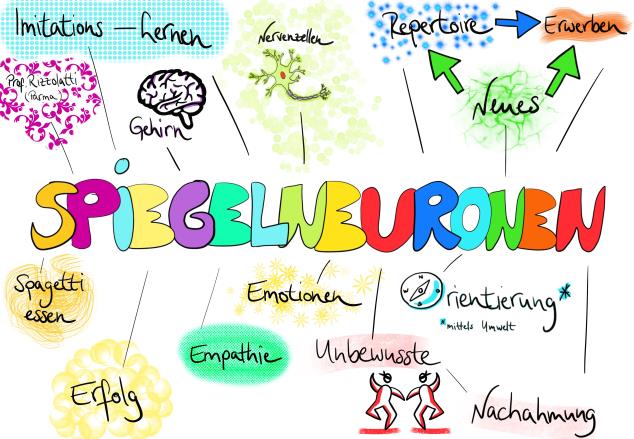 Imitations – Lernen
Nervenzellen
Repertoire
Erwerben
Prof. Rizzolatti
(Parma)
Gehirn
Neues
SPiEGELNEURONEN
Spagetti
essen
Emotionen
Orientierung*
*mittels Umwelt
N
Empathie
Unbewusste
Erfolg
Nachahmung